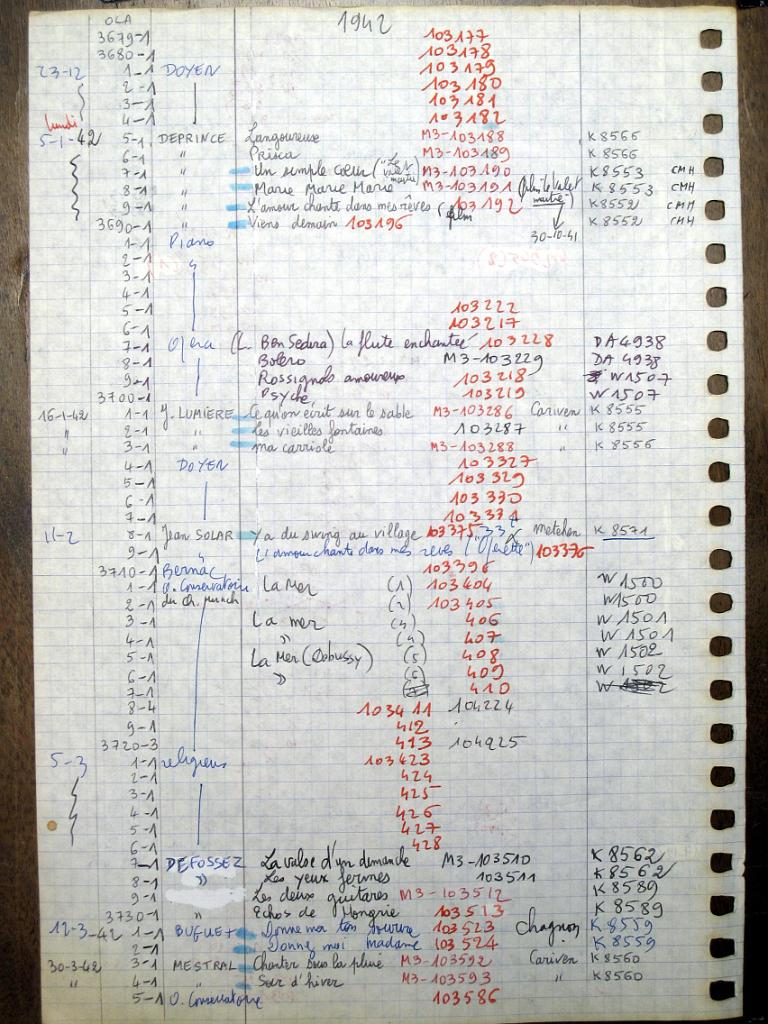 OLA 1942
3679-1 103177
3680-1 103178
23-12 1-1 DOYEN 103179
2-1 103180
3-1 103181
4-1 103182
lundi
5-1-42 5-1 DEPRINCE Langoureuse M3-103188 K 8566
6-1 " Prisca M3-103189 K 8566
7-1 " Un simple cœur ("Le valet maître") M3-103190 K 8553 CMH
8-1 " Marie Marie Marie M3-103191 (film le Valet maître) K 8553 CMH
9-1 " L'amour chante dans mes rêves (film 103192 K 8552 CMH
3690-1 " Viens demain 103196 30-10-41 K 8552 CMH
1-1 Piano
2-1 "
3-1
4-1
5-1 103222
6-1 103217
7-1 Opéra (L. Ben Sedira) la flute enchantée 103228 DA 4938
8-1 Boléro M3-103229 DA 4938
9-1 Rossignols amoureux 103218 W 1507
3700-1 Psyché 103219 W 1507
16-1-42 1-1 J. LUMIÈRE Ce qu'on écrit sur le sable M3-103286 Cariven K 8555
" 2-1 " Les vieilles fontaines 103287 " K 8555
" 3-1 " ma carriole M3-103288 K 8556
4-1 DOYEN 103327
5-1 103329
6-1 103330
7-1 103331
11-2 8-1 Jean SOLAR Y a du swing au village 103375 Metehen K 8571
9-1 " L'amour chante dans mes rêves ("Opérette") 103376
3710-1 Bernac 103396
1-1 O. Conservatoire La Mer (1) 103404 W 1500
2-1 du Ch. munch (2) 103405 W 1500
3-1 La mer 406 W 1501
4-1 " (4) 407 W 1501
5-1 La Mer (Debussy) (5) 408 W 1502
6-1 " (6) 409 W 1502
7-1 410 W
8-4 103411 104224
9-1 412
3720-3 413 104925
5-3 1-1 religieus 103423
2-1 424
3-1 425
4-1 426
5-1 427
6-1 428
7-1 DEFOSSEZ La valse d'un dimanche M3-103510 K 8562
8-1 " Les yeux fermes 103511 K 8562
9-1 Les deux guitares M3-103512 K 8589
3730-1 " Echos de Hongrie 103513 K 8589
12-3-42 1-1 BUGUET Donne moi ton sourire 103523 Chagnon K 8559
2-1 Donne moi madame 103524 K 8559
30-3-42 3-1 MESTRAL Chanter sous la pluie M3-103592 Cariven K 8560
" 4-1 " Soir d'hiver M3-103593 " K 8560
5-1 O. Conservatoire 103586